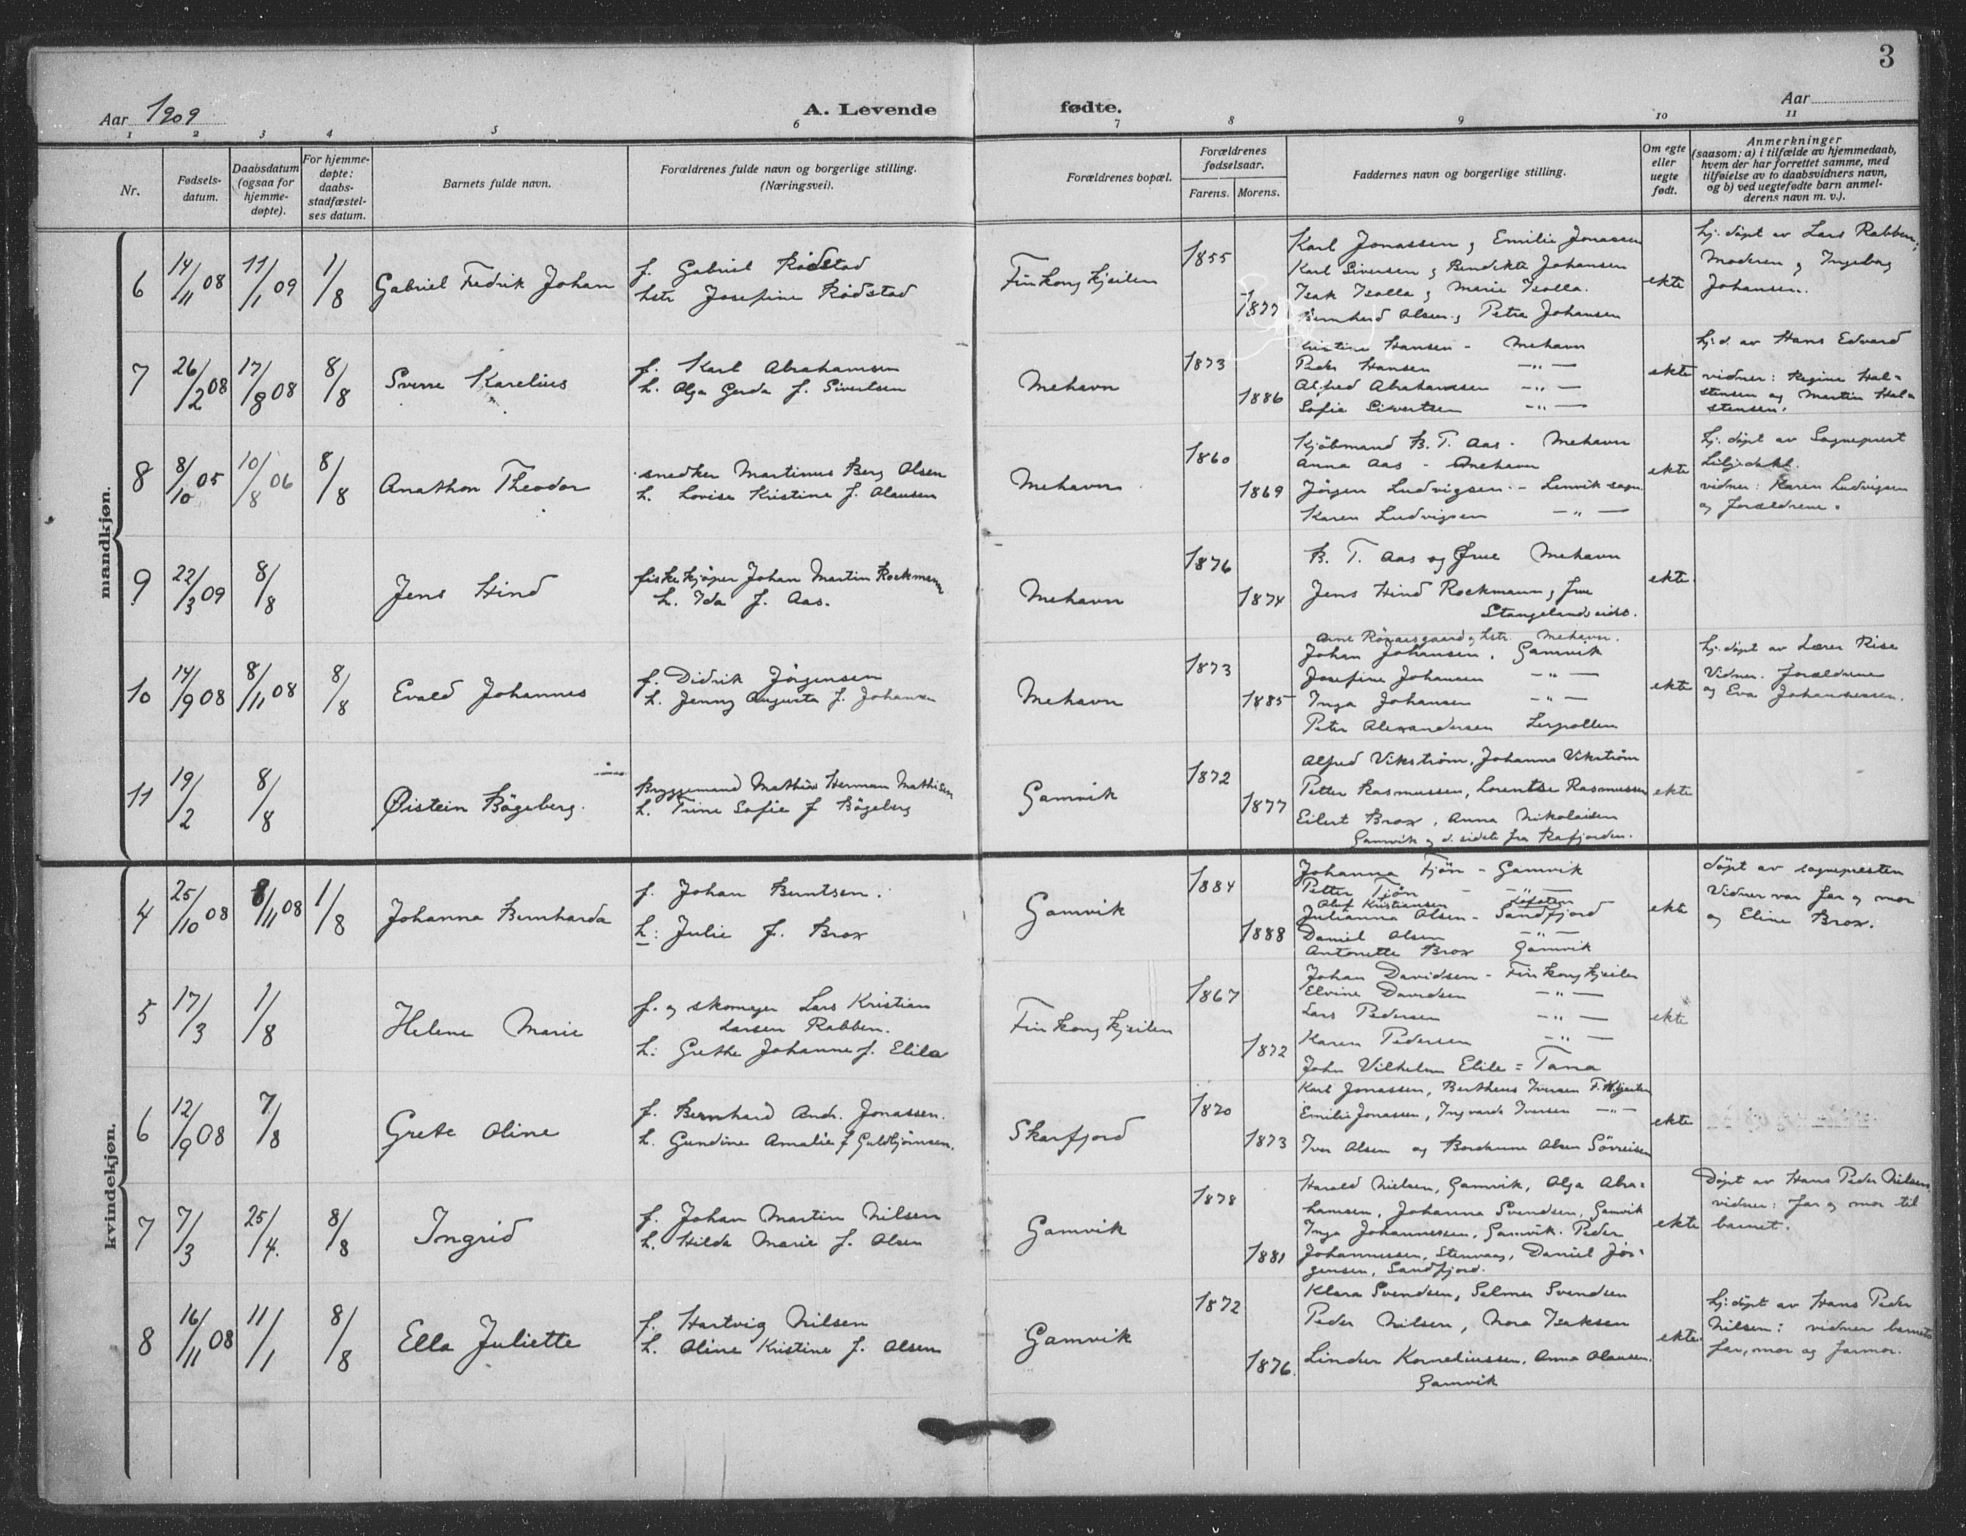 3
Aar 1909
A. Levende fødte.
Aar
1 2 3 4 5 6 7 8 9 10 11
Nr.
Fødsels-
datum.
Daabsdatum
(ogsaa for
hjemme-
døpte).
For hjemme-
døpte:
daabs-
stadfæstel-
ses datum.
Barnets fulde navn.
Forældrenes fulde navn og borgerlige stilling.
(Næringsvei).
Forældrenes bopæl.
Forældrenes
fødselsaar.
Farens. Morens.
Faddernes navn og borgerlige stilling.
Om egte
eller
uegte
født.
Anmerkninger
(saasom: a) i tilfælde av hjemmedaab,
hvem der har forrettet samme, med
tilføielse av to daabsvidners navn,
og b) ved uegtefødte barn anmel-
derens navn m. v.).
mandkjøn.
6 14/11 08 11/1 09 1/8 Gabriel Fredrik Johan
f. Gabriel Rödstad
hstr Josefine Rödstad
Finkongkjeilen
1855
1877
Karl Jonassen og Emilie Jonassen
Karl Siversen og Bendikte Johansen
Isak Isolla og Marie Isolla.
Bernhard Olsen og Petra Johansen
ekte
hj. döpt av Lars Rabben,
Moderen og Ingeborg
Johansen.
7 26/2 08 17/8 08 8/8 Sverre Karelius
f. Karl Abrahamsen
h. Olga Gerda f. Sivertsen
Mehavn
1873
1886
Kristine Hansen - Mehavn
Peder Hansen -"-
Alfred Abrahamsen -"-
Sofie Sivertsen -"-
ekte
hj. d. av Hans Edvard
vidner: Regine Hal-
stensen og Martin Hal-
stensen.
8 8/10 05 10/8 06 8/8 Anathon Theodor
snedker Martinus Berg Olsen
h. Lovise Kristine f. Olausen
Mehavn
1860
1869
Kjöbmand B. T. Aas - Mehavn
Anna Aas - Mehavn
Jörgen Ludvigsen - Lenvik sogn
Karen Ludvigsen -"-
ekte
hj. döpt av Sogneprest
Liljedahl.
vidner: Karen Ludvigsen
og forældrene.
9 22/3 09 8/8 Jens Hind
fiskekjøper Johan Martin Rockmann
h. Ida f. Aas.
Mehavn
1876
1874
B. T. Aas og Frue Mehavn
Jens Hind Rockmann og frue
Stangelandseide.
Arne Rönaasgaard og hstr. Mehavn.
ekte
10 14/9 08 8/11 08 8/8 Evald Johannes
f. Didrik Jörgensen
h. Jenny Augusta f. Johansen
Mehavn
1873
1885
Johan Johansen, Gamvik
Josefine Johansen -"-
Inga Johansen -"-
Peter Alexandersen Lerpollen
ekte
hj. döpt av Lærer Rise
Vidner. Forældrene
og Eva Johannessen.
11 19/2 8/8 Øistein Bögeberg.
Bryggemand Mathias Herman Mathisen
h. Trine Sofie f Bögeberg
Gamvik
1872
1877
Alfred Vikström, Johanna Vikström
Petter Rasmussen, Lorentse Rasmussen
Eilert Brox, Anna Nikolaisen
Gamvik og d. sidste fra Kafjorden.
ekte
kvindekjøn.
4 25/10 08 8/11 08 1/8 Johanna Bernharda
f. Johan Berntsen.
h: Julie f. Brox
Gamvik
1884
1888
Johanna Fjön - Gamvik
Petter Fjön - -"-
Oluf Kristiansen Lofoten
Julianna Olsen - Sandfjord
Daniel Olsen -"-
Antonette Brox Gamvik
ekte
döpt av sognepresten
Vidner var far og mor
og Eline Brox.
5 17/3 1/8 Helene Marie
f. og skomager Lars Kristian
Larsen Rabben.
h: Grethe Johanne f. Elila
Finkongkjeilen
1867
1872
Johan Davidsen - Finkongkjeilen
Elvine Davidsen -"-
Lars Pedersen -"-
Karen Pedersen -"-
John Vilhelm Elile = Tana
ekte
6 12/9 08 7/8 Grete Oline
f. Bernhard Andr. Jonassen.
h. Gundine Amalie f Guldbjörnsen.
Skarfjord
1870
1873
Karl Jonassen, Bertheus Iversen F.K.kjeilen
Emilie Jonassen, Ingvarda Iversen -"-
Iver Olsen og Bordanna Olsen Sörreisen
ekte
7 7/3 25/4. 8/8 Ingrid
f. Johan Martin Nilsen
h. Hilda Marie f. Olsen
Gamvik
1878
1881
Harald Nielsen, Gamvik, Olga Abra-
hamsen, Johanna Svendsen, Gamvik
Inga Johannessen, Gamvik. Peder
Johannessen, Stenvaag, Daniel Jör-
gensen, Sandfjord.
ekte
Döpt av Hans Peder Nilsen,
vidner: far og mor til
barnet.
8 16/11 08 11/1 8/8 Ella Juliette
f. Hartvig Nilsen
h. Oline Kristine f. Olsen
Gamvik
1872
1876.
Klara Svendsen, Selmer Svendsen
Peder Nilsen, Nora Isaksen
Linder Korneliussen, Anna Olausen.
Gamvik
ekte
hj: döpt av Hans Peder
Nilsen: vidner barnets
far, mor og farmor.